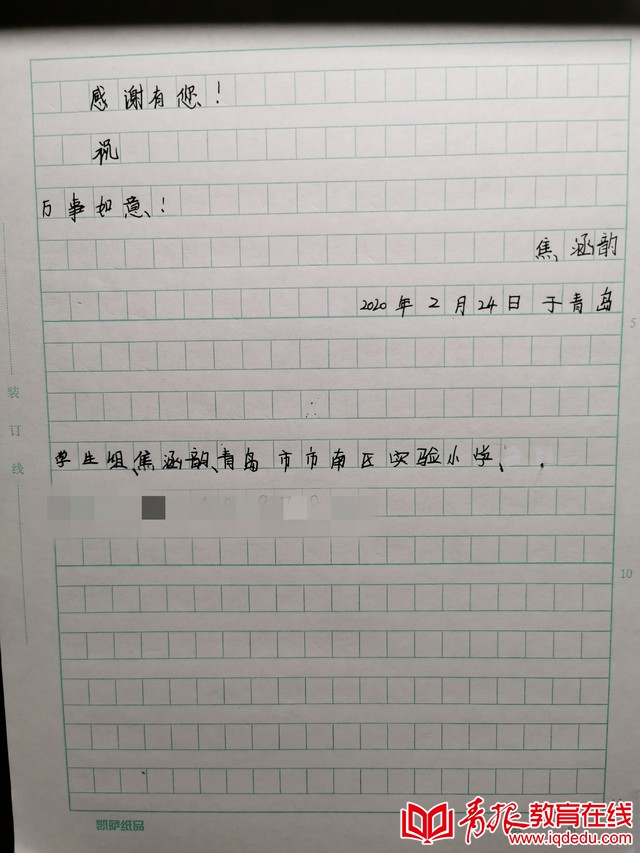 感谢有您！
祝
万事如意！
焦涵韵
2020年2月24日于青岛
5
装订线
学生组、焦涵韵、青岛市市南区实验小学、
10
凯萨纸品
青报教育在线
www.iqdedu.com